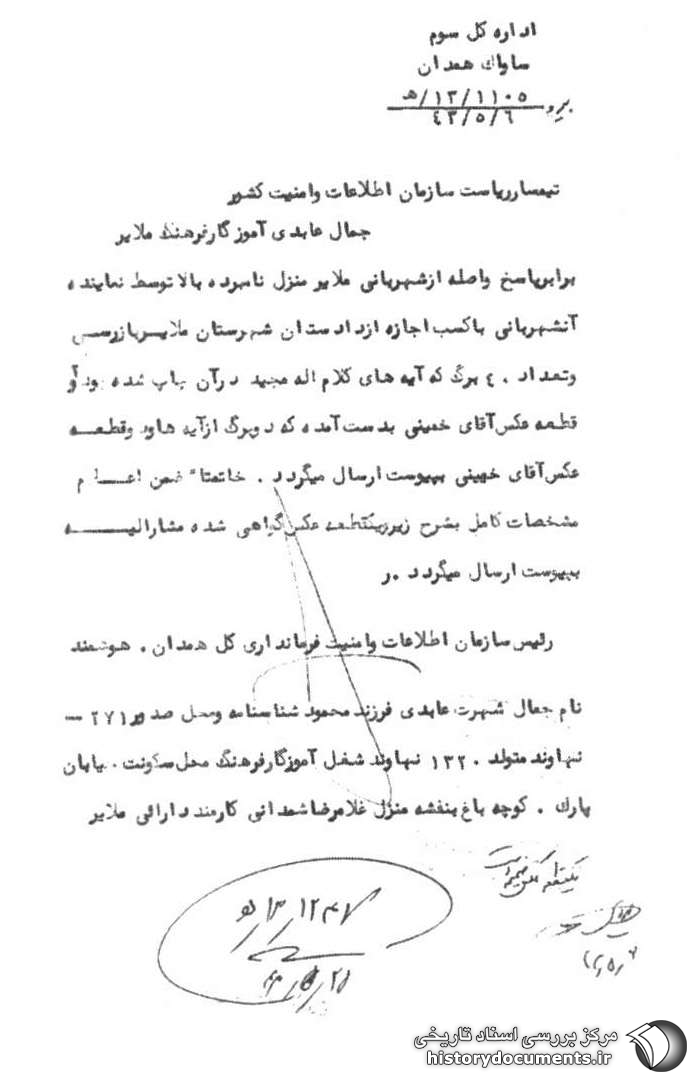 اداره کل سوم
ساواک همدان
پیرو ۱۱۰۵/۱۳/هـ
۴۳/۵/۶
تیمسارریاست سازمان اطلاعات وامنیت کشور
جمال عابدی آموزگارفرهنگ ملایر
برابرپاسخ واصله ازشهربانی ملایر منزل نامبرده بالاتوسط نماینده
آنشهربانی باکسب اجازه ازدادستان شهرستان ملایربازرسی
وتعداد ۴۰ برگ که آیه های کلام اله مجید درآن چاپ شده بود و
قطعه عکس آقای خمینی بدست آمده که دوبرگ ازآیه هاودوقطعه
عکس آقای خمینی بپیوست ارسال میگردد . خاتمتا" ضمن اعلام
مشخصات کامل بشرح زیریکقطعه عکس گواهی شده مشارالیه
بپیوست ارسال میگردد .ر
رئیس سازمان اطلاعات وامنیت فرمانداری کل همدان . هوشمند
نام جمال شهرت عابدی فرزند محمود شناسنامه ومحل صدور ۲۷۱ —
نهاوند متولد ۱۳۲۰ نهاوند شغل آموزگارفرهنگ محل سکونت خیابان
پارک . کوچه باغ بنفشه منزل غلامرضا شمدانی کارمند دارائی ملایر
یکقطعه عکس ضمیمه است
۱۲۴۷/۱۳/هـ
۴۳/۵/۲۱
مرکز بررسی اسناد تاریخی
historydocuments.ir